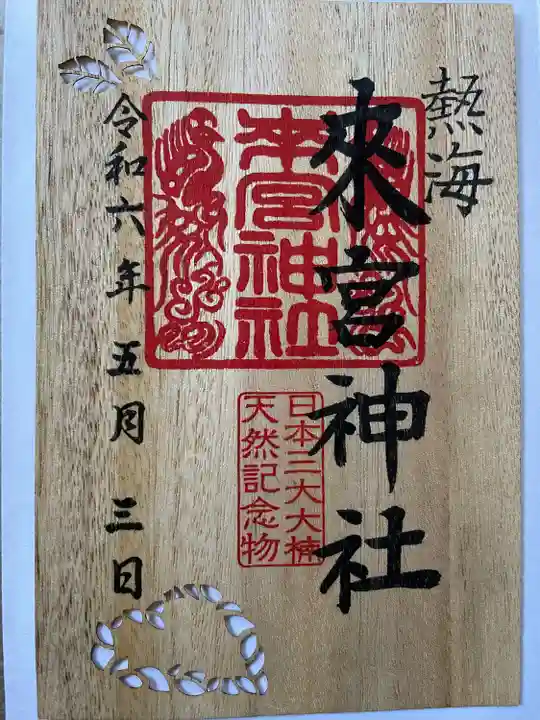 熱海
來宮神社
來宮神社
日本三大大楠
天然記念物
令和六年 五月 三日